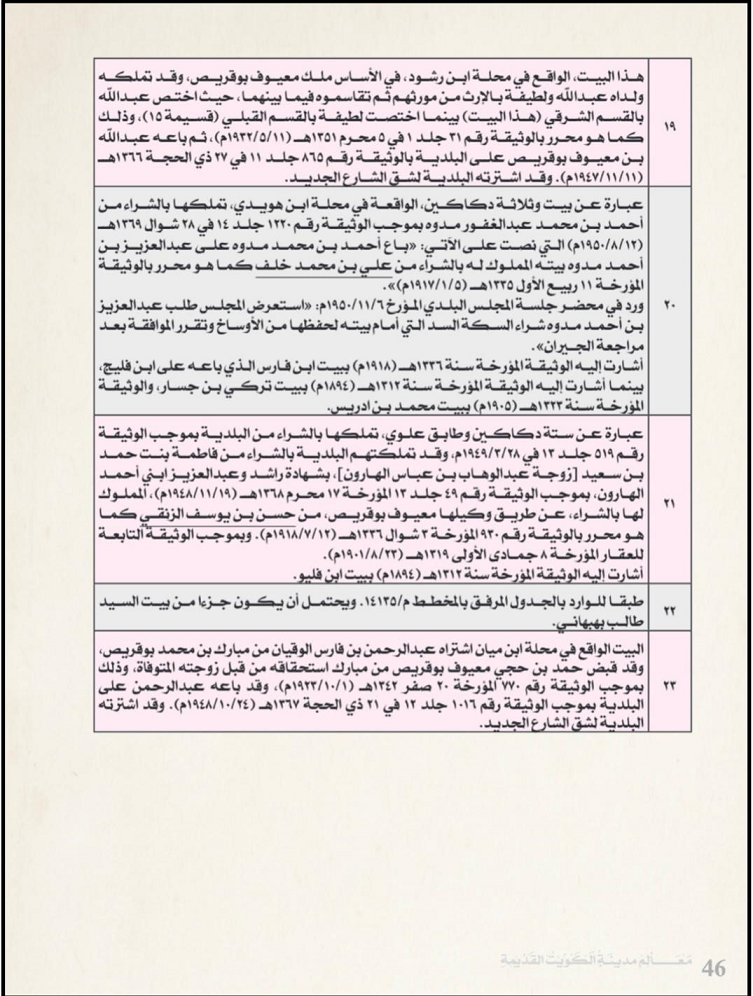 ١٩
هذا البيت، الواقع في محلة ابن رشود، في الأساس ملك معيوف بوقريص، وقد تملكه
ولداه عبدالله ولطيفة بالإرث من مورثهم ثم تقاسموه فيما بينهما، حيث اختص عبدالله
بالقسم الشرقي (هذا البيت) بينما اختصت لطيفة بالقسم القبلي (قسيمة ١٥)، وذلك
كما هو محرر بالوثيقة رقم ٣١ جلد ١ في ٥ محرم ١٣٥١هـ (١٩٣٢/٥/١١م)، ثم باعه عبدالله
بن معيوف بوقريص على البلدية بالوثيقة رقم ٨٦٥ جلد ١١ في ٢٧ ذي الحجة ١٣٦٦هـ
(١٩٤٧/١١/١١م). وقد اشترته البلدية لشق الشارع الجديد.
٢٠
عبارة عن بيت وثلاثة دكاكين، الواقعة في محلة ابن هويدي، تملكها بالشراء من
أحمد بن محمد عبدالغفور مدوه بموجب الوثيقة رقم ١٢٢٠ جلد ١٤ في ٢٨ شوال ١٣٦٩هـ
(١٩٥٠/٨/١٢م) التي نصت على الآتي: «باع أحمد بن محمد مدوه على عبدالعزيز بن
أحمد مدوه بيته المملوك له بالشراء من علي بن محمد خلف كما هو محرر بالوثيقة
المؤرخة ١١ ربيع الأول ١٣٣٥هـ (١٩١٧/١/٥م)».
ورد في محضر جلسة المجلس البلدي المؤرخ ١٩٥٠/١١/٦م: «استعرض المجلس طلب عبدالعزيز
بن أحمد مدوه شراء السكة السد التي أمام بيته لحفظها من الأوساخ وتقرر الموافقة بعد
مراجعة الجيران».
أشارت إليه الوثيقة المؤرخة سنة ١٣٣٦هـ (١٩١٨م) ببيت ابن فارس الذي باعه على ابن فليج،
بينما أشارت إليه الوثيقة المؤرخة سنة ١٣١٢هـ (١٨٩٤م) ببيت تركي بن جسار، والوثيقة
المؤرخة سنة ١٣٢٣هـ (١٩٠٥م) ببيت محمد بن ادريس.
٢١
عبارة عن ستة دكاكين وطابق علوي، تملكها بالشراء من البلدية بموجب الوثيقة
رقم ٥١٩ جلد ١٣ في ١٩٤٩/٣/٢٨م، وقد تملكتهم البلدية بالشراء من فاطمة بنت حمد
بن سعيد [زوجة عبدالوهاب بن عباس الهارون]، بشهادة راشد وعبدالعزيز ابني أحمد
الهارون، بموجب الوثيقة رقم ٤٩ جلد ١٣ المؤرخة ١٧ محرم ١٣٦٨هـ (١٩٤٨/١١/١٩م)، المملوك
لها بالشراء، عن طريق وكيلها معيوف بوقريص، من حسن بن يوسف الزنقي كما
هو محرر بالوثيقة رقم ٩٣٠ المؤرخة ٣ شوال ١٣٣٦هـ (١٩١٨/٧/١٢م). وبموجب الوثيقة التابعة
للعقار المؤرخة ٨ جمادى الأولى ١٣١٩هـ (١٩٠١/٨/٢٣م).
أشارت إليه الوثيقة المؤرخة سنة ١٣١٢هـ (١٨٩٤م) ببيت ابن فليو.
٢٢
طبقا للوارد بالجدول المرفق بالمخطط م/١٤١٣٥. ويحتمل أن يكون جزءا من بيت السيد
طالب بهبهاني.
٢٣
البيت الواقع في محلة ابن ميان اشتراه عبدالرحمن بن فارس الوقيان من مبارك بن محمد بوقريص،
وقد قبض حمد بن حجي معيوف بوقريص من مبارك استحقاقه من قبل زوجته المتوفاة، وذلك
بموجب الوثيقة رقم ٧٧٠ المؤرخة ٢٠ صفر ١٣٤٢هـ (١٩٢٣/١٠/١م)، وقد باعه عبدالرحمن على
البلدية بموجب الوثيقة رقم ١٠١٦ جلد ١٢ في ٢١ ذي الحجة ١٣٦٧هـ (١٩٤٨/١٠/٢٤م). وقد اشترته
البلدية لشق الشارع الجديد.
46 مَعَـالم مدينَةِ الكُوَيتْ القَدِيمَةِ